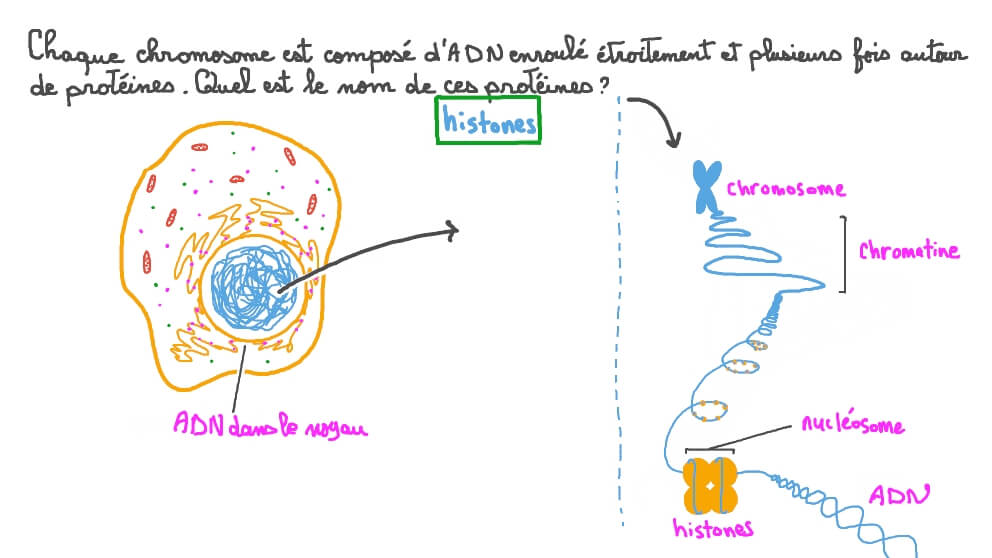 Chaque chromosome est composé d'ADN enroulé étroitement et plusieurs fois autour
de protéines. Quel est le nom de ces protéines ?
histones
chromosome
chromatine
ADN dans le noyau
nucléosome
ADN
histones